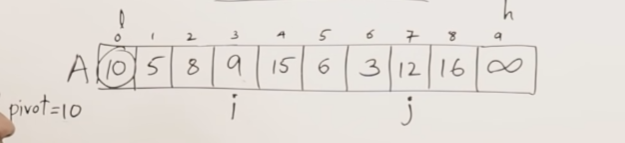 l h
0 1 2 3 4 5 6 7 8 9
A 10 5 8 9 15 6 3 12 16 ∞
pivot=10 i j